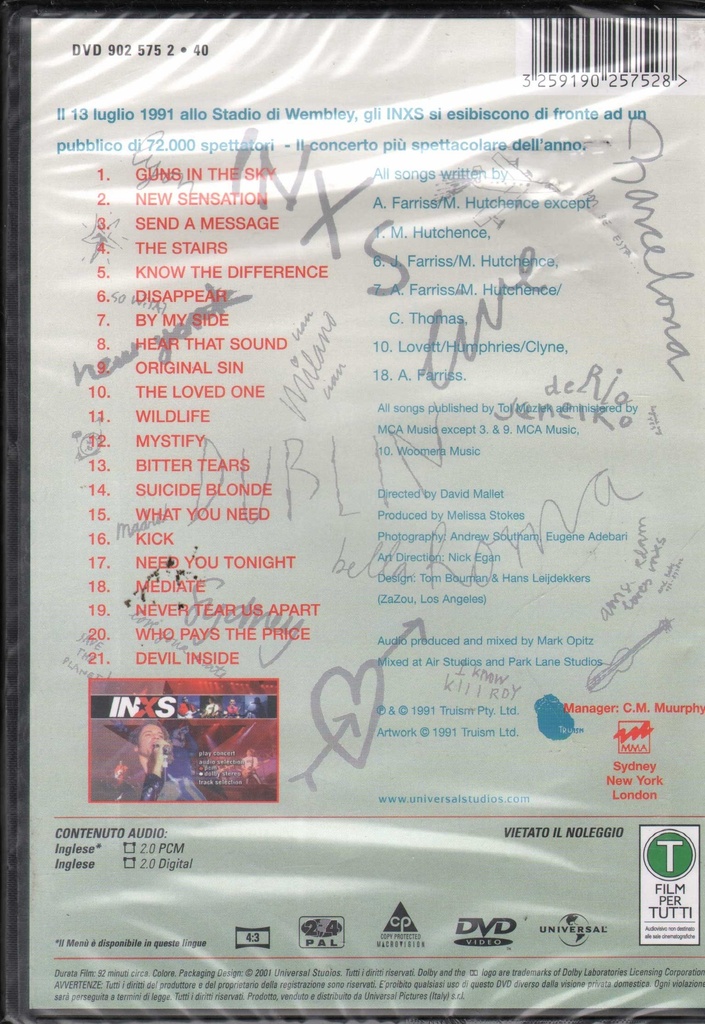 DVD 902 575 2 • 40
3 259190 257528 >
Il 13 luglio 1991 allo Stadio di Wembley, gli INXS si esibiscono di fronte ad un
pubblico di 72.000 spettatori - Il concerto più spettacolare dell'anno.
1. GUNS IN THE SKY
2. NEW SENSATION
3. SEND A MESSAGE
4. THE STAIRS
5. KNOW THE DIFFERENCE
6. DISAPPEAR
7. BY MY SIDE
8. HEAR THAT SOUND
9. ORIGINAL SIN
10. THE LOVED ONE
11. WILDLIFE
12. MYSTIFY
13. BITTER TEARS
14. SUICIDE BLONDE
15. WHAT YOU NEED
16. KICK
17. NEED YOU TONIGHT
18. MEDIATE
19. NEVER TEAR US APART
20. WHO PAYS THE PRICE
21. DEVIL INSIDE
All songs written by
A. Farriss/M. Hutchence except
1. M. Hutchence,
6. J. Farriss/M. Hutchence,
7. A. Farriss/M. Hutchence/
C. Thomas,
10. Lovett/Humphries/Clyne,
18. A. Farriss.
All songs published by Tol Muziek administered by
MCA Music except 3. & 9. MCA Music,
10. Woomera Music
Directed by David Mallet
Produced by Melissa Stokes
Photography: Andrew Southam, Eugene Adebari
Art Direction: Nick Egan
Design: Tom Bouman & Hans Leijdekkers
(ZaZou, Los Angeles)
Audio produced and mixed by Mark Opitz
Mixed at Air Studios and Park Lane Studios
℗ & © 1991 Truism Pty. Ltd.
Artwork © 1991 Truism Ltd.
www.universalstudios.com
Truism
Manager: C.M. Muurphy
MMA
Sydney
New York
London
INXS
live
Barcelona
new york
Milano
de Rio
Jeneiro
DUBLIN
bella Roma
Sydney
SAVE
THE
PLANET
I KNOW
KILLROY
INXS
play concert
audio selection
pcm
dolby stereo
track selection
CONTENUTO AUDIO:
Inglese* 2.0 PCM
Inglese 2.0 Digital
VIETATO IL NOLEGGIO
T
FILM
PER
TUTTI
Audiovisivo non destinato
alle sale cinematografiche
*Il Menù è disponibile in queste lingue
4:3
2 4
PAL
CP
COPY PROTECTED
MACROVISION
DVD
VIDEO
UNIVERSAL
Durata Film: 92 minuti circa. Colore. Packaging Design: © 2001 Universal Studios. Tutti i diritti riservati. Dolby and the DD logo are trademarks of Dolby Laboratories Licensing Corporation
AVVERTENZE: Tutti i diritti del produttore e del proprietario della registrazione sono riservati. E' proibito qualsiasi uso di questo DVD diverso dalla visione privata domestica. Ogni violazione
sarà perseguita a termini di legge. Tutti i diritti riservati. Prodotto, venduto e distribuito da Universal Pictures (Italy) s.r.l.